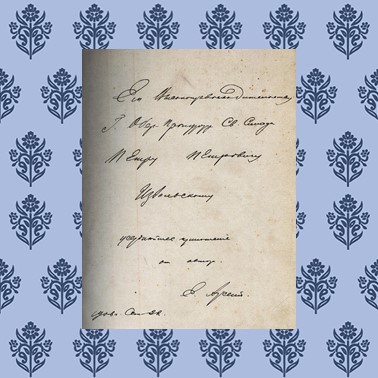 Его Высокопревосходительству
Г. Обер Прокурору Св. Синода
Петру Петровичу
Извольскому
усерднейшее приношение
от автора.
Е. Арсений.